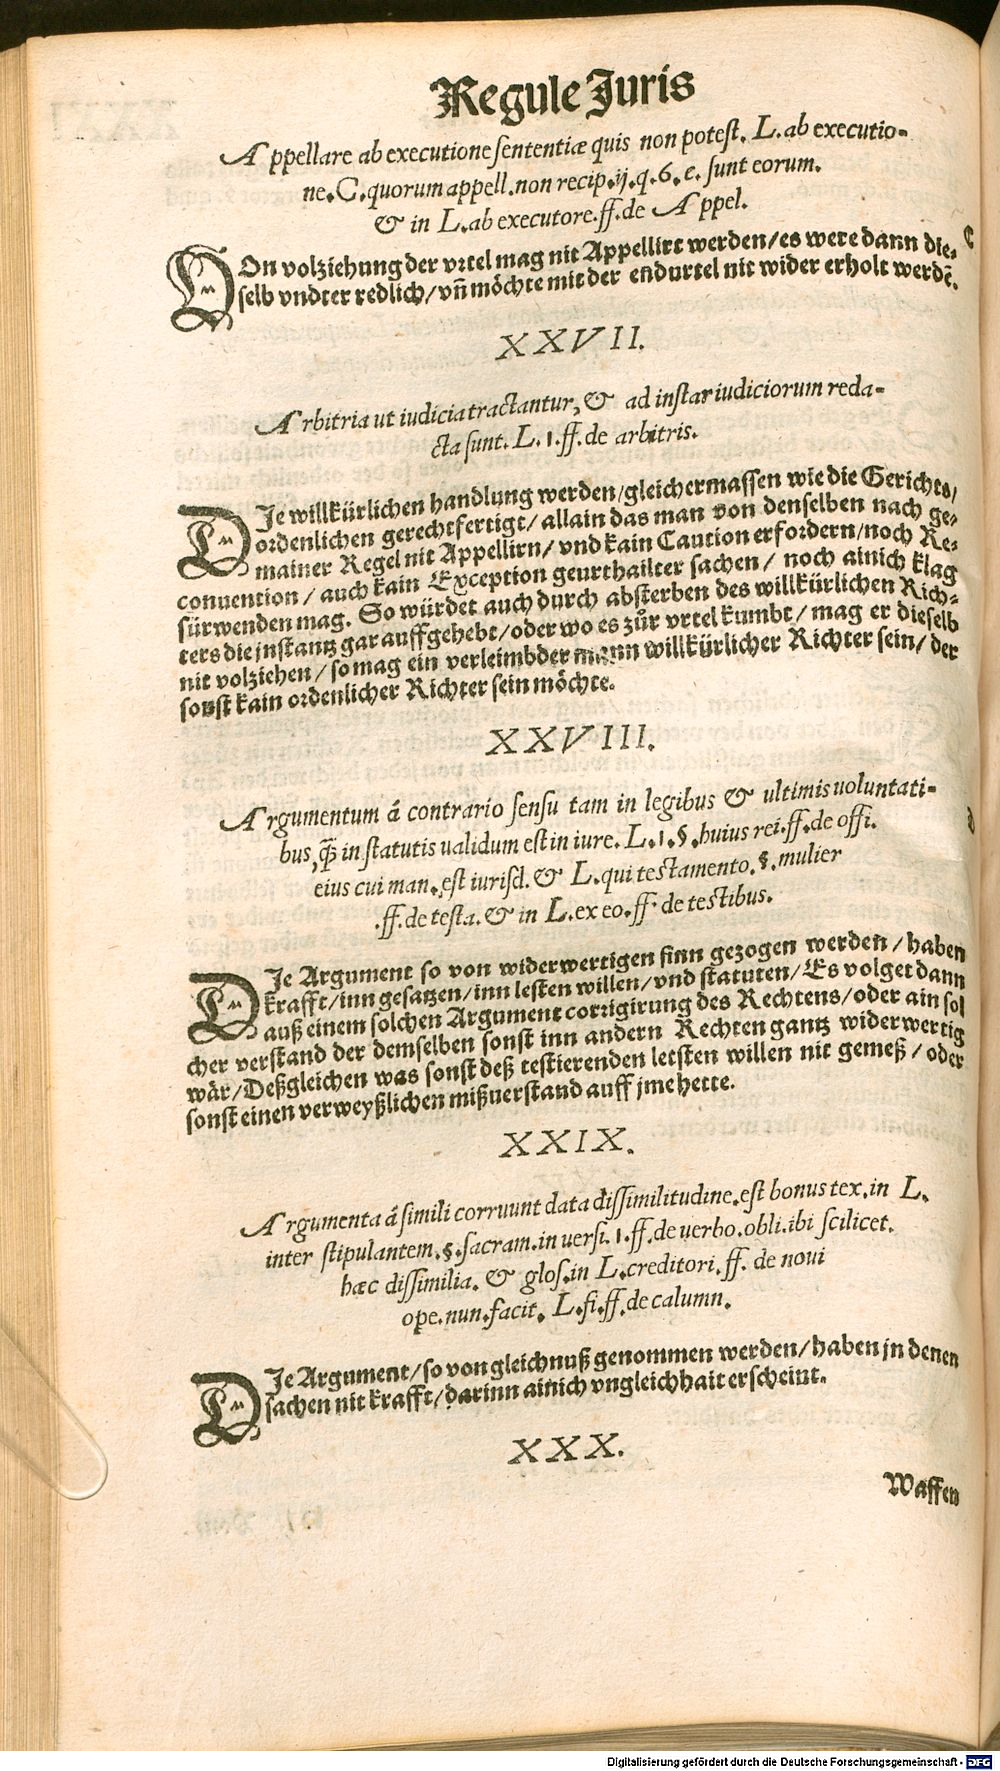 Regule Juris
Appellare ab executione sententiæ quis non potest. L. ab executio-
ne. C. quorum appell. non recip. ij. q. 6. c. sunt eorum.
& in L. ab executore. ff. de Appel.
VOn volziehung der vrtel mag nit Appellirt werden/es were dann die-
selb vndter redlich/vñ möchte mit der endurtel nit wider erholt werdē.
XXVII.
Arbitria ut iudicia tractantur, & ad instar iudiciorum reda-
cta sunt. L. 1. ff. de arbitris.
DJe willkürlichen handlung werden/gleichermassen wie die Gerichts/
ordenlichen gerechtfertigt/allain das man von denselben nach ge-
mainer Regel nit Appellirn/vnd kain Caution erfordern/noch Re-
conuention/auch kain Exception geurthailter sachen/noch ainich klag
fürwenden mag. So würdet auch durch absterben des willkürlichen Rich-
ters die instantz gar auffgehebt/oder wo es zůr vrtel kumbt/mag er dieselb
nit volziehen/so mag ein verleimbder mann willkürlicher Richter sein/der
sonst kain ordenlicher Richter sein möchte.
XXVIII.
Argumentum á contrario sensu tam in legibus & ultimis uoluntati-
bus, q̃ in statutis ualidum est in iure. L. 1. §. huius rei. ff. de offi.
eius cui man. est iurisd. & L. qui testamento. §. mulier
.ff. de testa. & in L. ex eo. ff. de testibus.
DJe Argument so von widerwertigen sinn gezogen werden/haben
krafft/inn gesatzen/inn lesten willen/vnd statuten/Es volget dann
auß einem solchen Argument corrigirung des Rechtens/oder ain sol
cher verstand der demselben sonst inn andern Rechten gantz widerwertig
wär/Deßgleichen was sonst deß testierenden letsten willen nit gemeß/oder
sonst einen verweyßlichen mißuerstand auff jme hette.
XXIX.
Argumenta á simili corruunt data dissimilitudine. est bonus tex. in L.
inter stipulantem. §. sacram. in uersi. 1. ff. de uerbo. obli. ibi scilicet.
hæc dissimilia. & glos. in L. creditori. ff. de noui
ope. nun. facit. L. fi. ff. de calumn.
DJe Argument/so von gleichnuß genommen werden/haben jn denen
sachen nit krafft/darinn ainich vngleichhait erscheint.
XXX.
Waffen
Digitalisierung gefördert durch die Deutsche Forschungsgemeinschaft - DFG